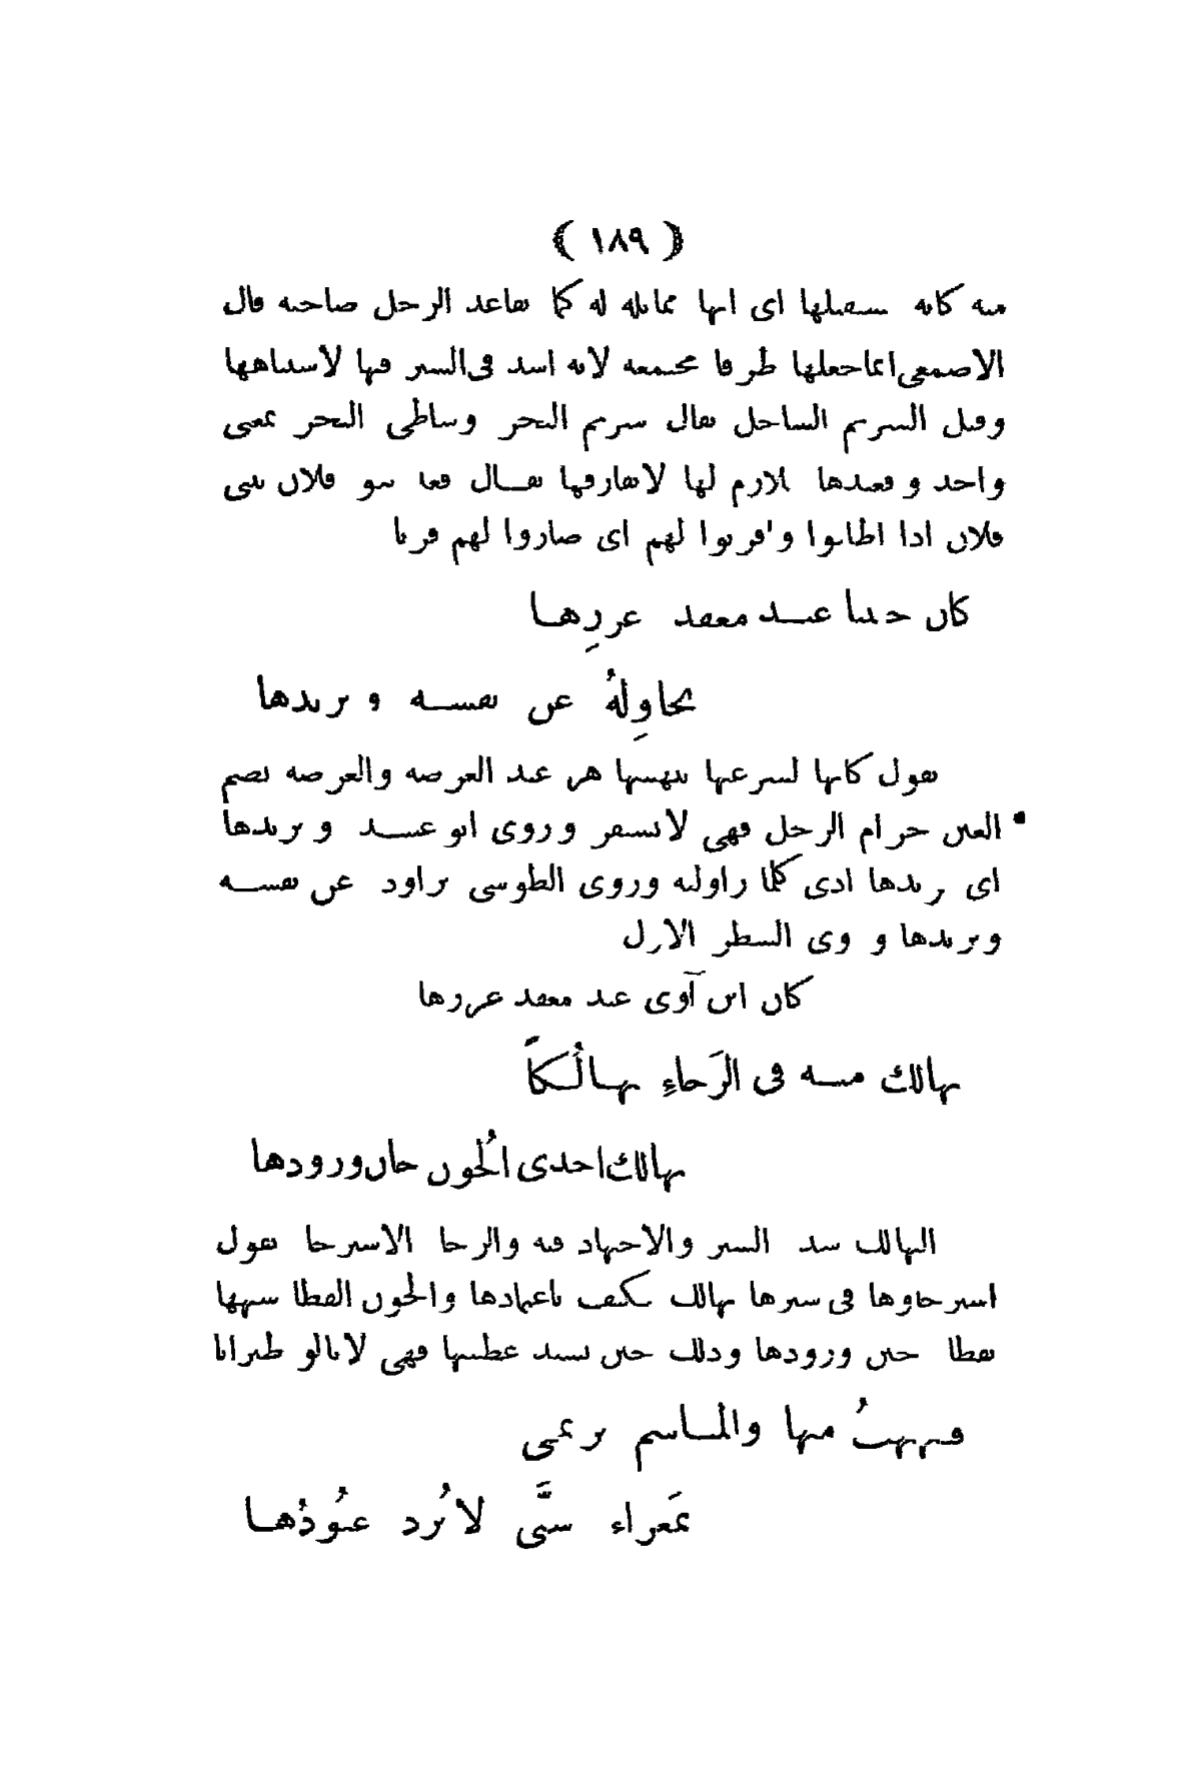 ﴿ ١٨٩ ﴾
منه كانه يستقبلها اى انها مقابله له كما يقاعد الرجل صاحبه قال
الاصمعى انما جعلها طرفا مجتمعه لانه اشد فى السير فيها لاستباهها
وقيل الشريم الساحل يقال شريم البحر وشاطى البحر بمعنى
واحد و قعيدها ملازم لها لا يفارقها يقـــال قعد بنو فلان ببنى
فلان اذا اطافوا و اقربوا لهم اى صاروا لهم قربا
كان جنيبا عنـــد معقد غرزهــا
يحاولهُ عن نفســـه و يريدها
يقول كانها لسرعتها ينهشها هر عند الغرضه والغرضه بضم
الغين حزام الرحل فهى لا تستقر وروى ابو عبيـــد و يريدها
اى يريدها اذى كلما راولته وروى الطوسى يراود عن نفســـه
ويريدها و روى الشطر الاول
كان ابن آوى عند معقد غرزها
تهالك منـــه فى الرَخاءِ تهــالُــكاً
تهالك احدى الجُون حان ورودها
التهالك شد السير والاجتهاد فيه والرخا الاسترخا يقول
استرخاوها فى سيرها تهالك فكيف باعتمادها والجون القطا شبهها
بقطا حين ورودها وذلك حين يشتد عطشها فهى لا تالو طيرانا
فنهنهتُ منها والمنـــاسم ترتمى
بمَعزاء شتَّى لا يُرد عنُودُهــا